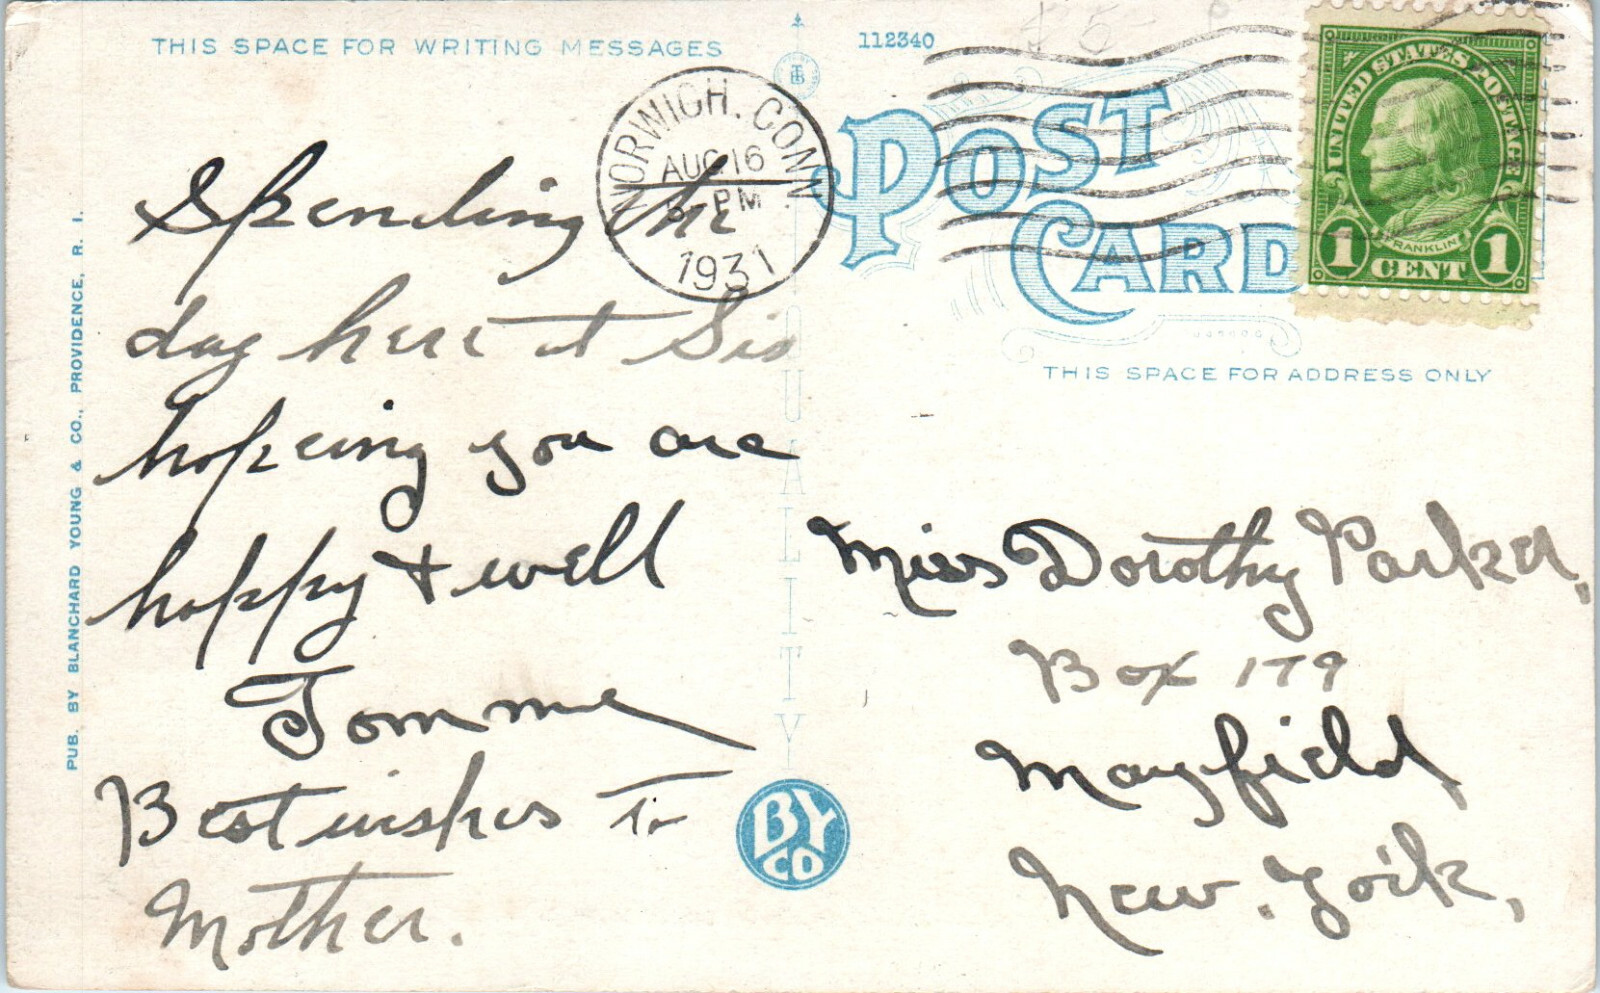 THIS SPACE FOR WRITING MESSAGES
Spending the
day here at Sis
hopeing you are
happy + well
Tomme
Best wishes to
Mother.
PUB. BY BLANCHARD YOUNG & CO., PROVIDENCE, R. I.
QUALITY
BY
CO
NORWICH, CONN.
AUG 16
PM
1931
112340
POST
CARD
UNITED STATES POSTAGE
FRANKLIN
1 CENT 1
THIS SPACE FOR ADDRESS ONLY
Miss Dorothy Parker,
Box 179
Mayfield
New. York,